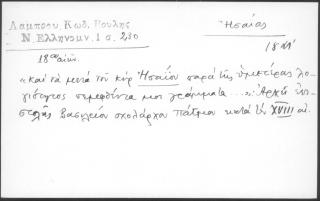 Λαμπρου Κωδ. Βουλης Ἠσαΐας
Ν. Ἑλληνομν. 1 σ. 230 18 αἰ
18ου αἰῶν.
«καὶ τὰ μετὰ τοῦ κὺρ Ἠσαΐου παρὰ τῆς ὑμετέρας λο-
γιότητος πεμφθέντα μοι γράμματα ...» Ἀρχὴ ἐπι-
στολῆς Βασιλείου σχολάρχου Πάτμου κατὰ τὸν XVIII αἰ.